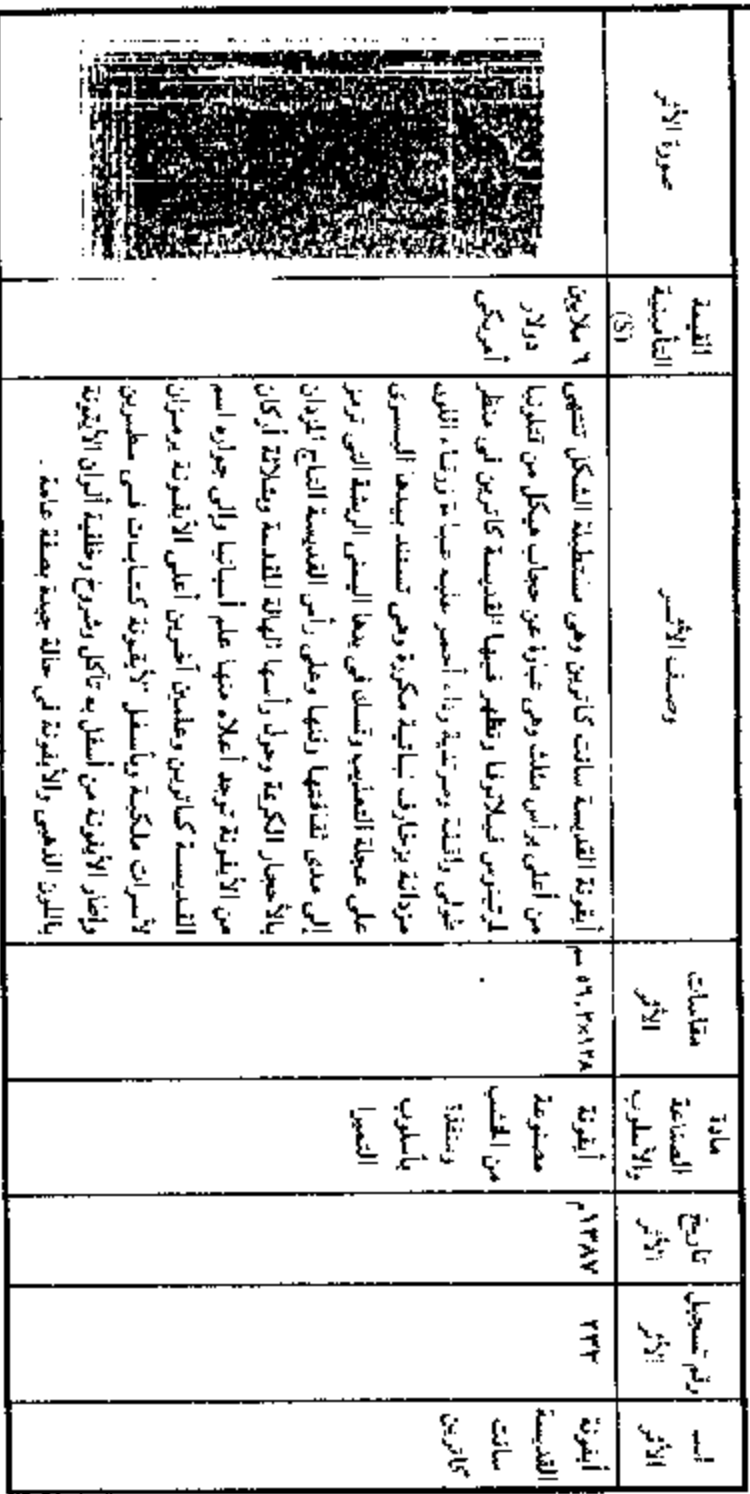 اسم
الأثر
رقم تسجيل
الأثر
تاريخ
الأثر
مادة
الصناعة
والأسلوب
مقاسات
الأثر
وصف الأثر
القيمة
التأمينية
($)
صورة الأثر
أيقونة
القديسة
سانت
كاترين
٢٣٢
١٣٨٧م
أيقونة
مصنوعة
من الخشب
ومنفذة
بأسلوب
التمبرا
١٢٨×٥٦,٢ سم
أيقونة القديسة سانت كاترين وهى مستطيلة الشكل تنتهى
من أعلى برأس مثلث وهى عبارة عن حجاب هيكل من
لرتينوس فيلانوفا وتظهر فيها القديسة كاترين فى منظر
طولى واقفة ومرتدية رداء أحمر عليه عباءة زرقاء اللون
مزدانة بزخارف نباتية مكررة وهى تستند بيدها اليسرى
على عجلة التعذيب وتمسك فى يدها اليمنى الريشة التى ترمز
إلى مدى ثقافتها وفنها وعلى رأس القديسة التاج المزدان
بالأحجار الكريمة وحول رأسها الهالة المقدسة وبثلاثة أركان
من الأيقونة توجد أعلاه منها علم أسبانيا وإلى جواره اسم
القديسة كاترين وعلمين آخرين أعلى الأيقونة يرمزان
لأسرات ملكية وبأسفل الأيقونة كتابات فى سطرين
وإطار الأيقونة من أسفل به تآكل وشروخ وخلفية ألوان الأيقونة
باللون الذهبى والأيقونة فى حالة جيدة بصفة عامة .
٦ ملايين
دولار
أمريكى